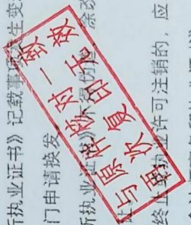 所执业证书》记载事项发生变
门申请换发
所执业证书》不得伪造、涂改
终止 执业许可注销的，应
与原件核对一致
再次复印无效